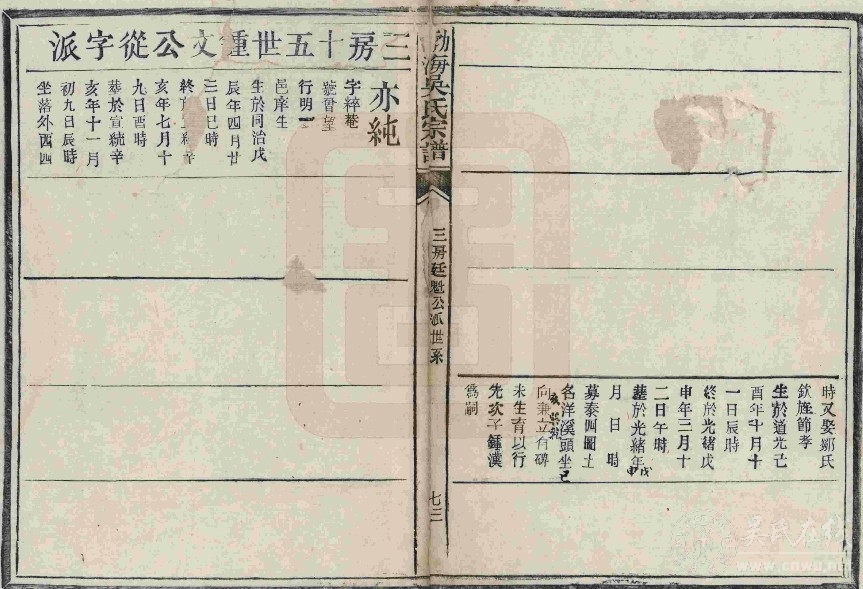 時又娶鄒氏
欽旌節孝
生於道光己
酉年十月十
一日辰時
終於光緒戊
申年三月十
二日午時
葬於光緒年戊申
月日時
募泰四圖土
名洋溪頭坐巳
向兼立有碑
未生育以行
先次子鍾漢
為嗣
渤海吳氏宗譜
三房廷魁公派世系
七三
三房十五世鍾文公從字派
亦純
字粹菴
號胥望
行明一
邑庠生
生於同治戊
辰年四月廿
三日巳時
終於宣統辛
亥年七月十
九日酉時
葬於宣統辛
亥年十一月
初九日辰時
坐落外西四
吳氏在線
www.cnwu.net